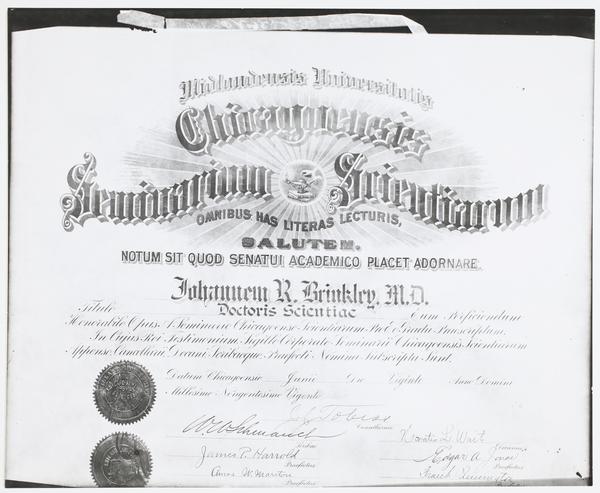 Midlandensis Universitatis
Chicagoensis
Seminarium Scientiarum
OMNIBUS HAS LITERAS LECTURIS,
SALUTEM.
NOTUM SIT QUOD SENATUI ACADEMICO PLACET ADORNARE.
Johannem R. Brinkley, M.D.
Titulo Doctoris Scientiae Eum Perficiendum
Honorabile Opus, A Seminarii Chicagoense Scientiarum Pro Gradu Praescriptum.
In Cujus Rei Testimonium, Sigillo Corporato Seminarii Chicagoensis Scientiarum
Appenso, Decani Praefecti Nomina Subscripta Sunt.
Datum Chicagoensis Junii Die Viginti Anno Domini
Millesimo Nongentesimo Vigenti
Tobias
Horatio L. Wait
James P. Harrold
Edgar A. Jones
Praefectus
Amos W. Marston
Frank
Praefectus